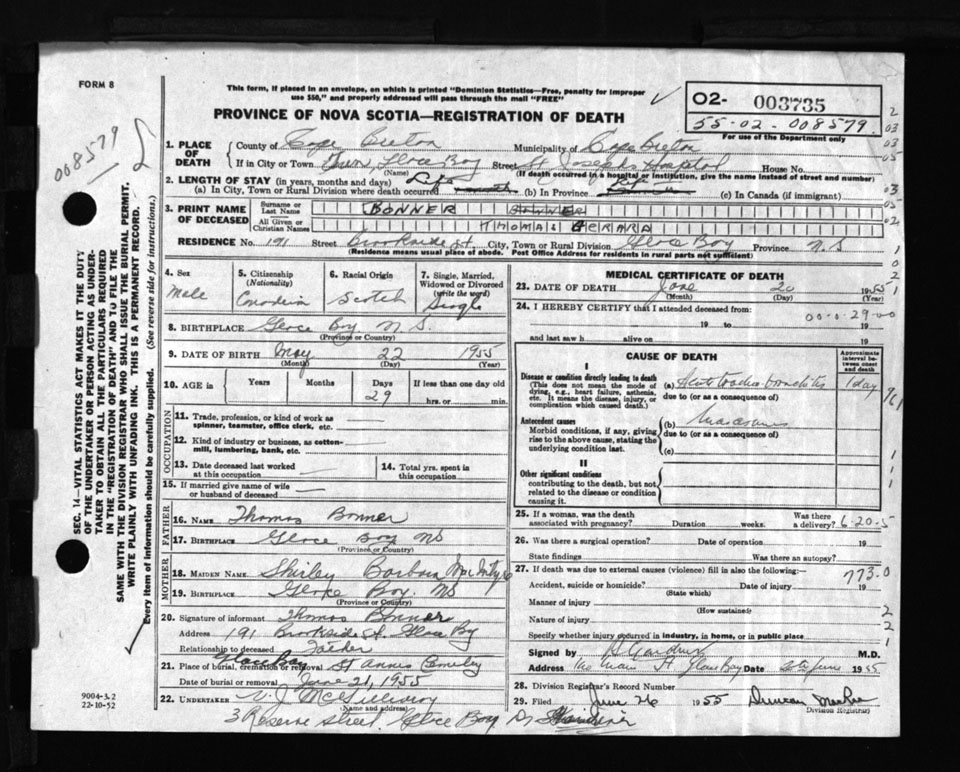 FORM 8
This form, if placed in an envelope, on which is printed "Dominion Statistics—Free, penalty for improper
use $50," and properly addressed will pass through the mail "FREE"
PROVINCE OF NOVA SCOTIA—REGISTRATION OF DEATH
02- 003735
55-02-008579.
For use of the Department only
008579
1. PLACE OF DEATH
County of Cape Breton Municipality of Cape Breton
If in City or Town Town Glace Bay Street St Josephs Hospital House No.
(Name) (If death occurred in a hospital or institution, give the name instead of street and number)
2. LENGTH OF STAY (in years, months and days)
(a) In City, Town or Rural Division where death occurred Life (b) In Province Life (c) In Canada (if immigrant)
3. PRINT NAME OF DECEASED
Surname or Last Name BONNER
All Given or Christian Names THOMAS GERARD
RESIDENCE No. 191 Street Brookside St. City, Town or Rural Division Glace Bay Province N.S
(Residence means usual place of abode. Post Office Address for residents in rural parts not sufficient)
4. Sex
Male
5. Citizenship
(Nationality)
Canadian
6. Racial Origin
Scotch
7. Single, Married, Widowed or Divorced
(write the word)
Single
8. BIRTHPLACE Glace Bay N.S.
(Province or Country)
9. DATE OF BIRTH May 22 1955
(Month) (Day) (Year)
10. AGE in Years Months Days 29 If less than one day old
hrs. or min.
OCCUPATION
11. Trade, profession, or kind of work as
spinner, teamster, office clerk, etc.
12. Kind of industry or business, as cotton-
mill, lumbering, bank, etc.
13. Date deceased last worked
at this occupation
14. Total yrs. spent in
this occupation
15. If married give name of wife
or husband of deceased
FATHER
16. NAME Thomas Bonner
17. BIRTHPLACE Glace Bay NS
(Province or Country)
MOTHER
18. MAIDEN NAME Shirley
19. BIRTHPLACE Glace Bay. NS
(Province or Country)
20. Signature of informant Thomas Bonner
Address 191 Brookside St. Glace Bay
Relationship to deceased Father
21. Place of burial, cremation or removal Glace Bay St Annes Cemetery
Date of burial or removal June 21, 1955
22. UNDERTAKER V. J. McGillivray
(Name and address)
3 Reserve Street, Glace Bay
MEDICAL CERTIFICATE OF DEATH
23. DATE OF DEATH June 20 1955
(Month) (Day) (Year)
24. I HEREBY CERTIFY that I attended deceased from:
00-0-29-00
19 to 19
and last saw h alive on 19
CAUSE OF DEATH
Approximate interval between onset and death
I
Disease or condition directly leading to death
(This does not mean the mode of
dying, e.g., heart failure, asthenia,
etc. It means the disease, injury, or
complication which caused death.)
(a) Acute tracheo-bronchitis 1 day
due to (or as a consequence of)
Antecedent causes
Morbid conditions, if any, giving
rise to the above cause, stating the
underlying condition last.
(b) Marasmus
due to (or as a consequence of)
(c)
II
Other significant conditions
contributing to the death, but not
related to the disease or condition
causing it.
25. If a woman, was the death
associated with pregnancy? Duration weeks. Was there a delivery? 6-20-5
26. Was there a surgical operation? Date of operation 19
State findings Was there an autopsy?
27. If death was due to external causes (violence) fill in also the following:—
773.0
Accident, suicide or homicide? Date of injury 19
(State which)
Manner of injury
(How sustained)
Nature of injury
Specify whether injury occurred in industry, in home, or in public place
Signed by M.D.
Address Main St Glace Bay Date June 1955
28. Division Registrar's Record Number
29. Filed June 26 1955 Duncan
Division Registrar
SEC. 14—VITAL STATISTICS ACT MAKES IT THE DUTY
OF THE UNDERTAKER OR PERSON ACTING AS UNDER-
TAKER TO OBTAIN ALL THE PARTICULARS REQUIRED
IN THE "REGISTRATION OF DEATH" AND TO FILE THE
SAME WITH THE DIVISION REGISTRAR WHO SHALL ISSUE THE BURIAL PERMIT.
WRITE PLAINLY WITH UNFADING INK. THIS IS A PERMANENT RECORD.
Every item of information should be carefully supplied. (See reverse side for instructions.)
9004-3.2
22-10-52